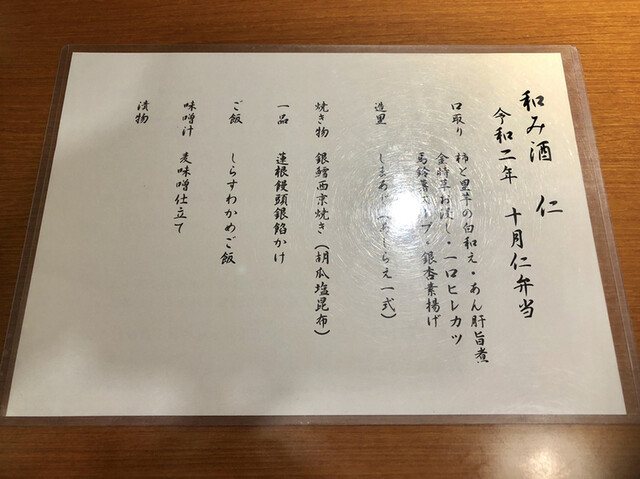 和み酒 仁
令和二年 十月仁弁当
口取り 柿と里芋の白和え・あん肝旨煮
金時芋お浸し・一口ヒレカツ
馬鈴薯スープ・銀杏素揚げ
造里 しまあじ(あしらえ一式)
焼き物 銀鱈西京焼き(胡瓜塩昆布)
一品 蓮根饅頭銀餡かけ
ご飯 しらすわかめご飯
味噌汁 麦味噌仕立て
漬物